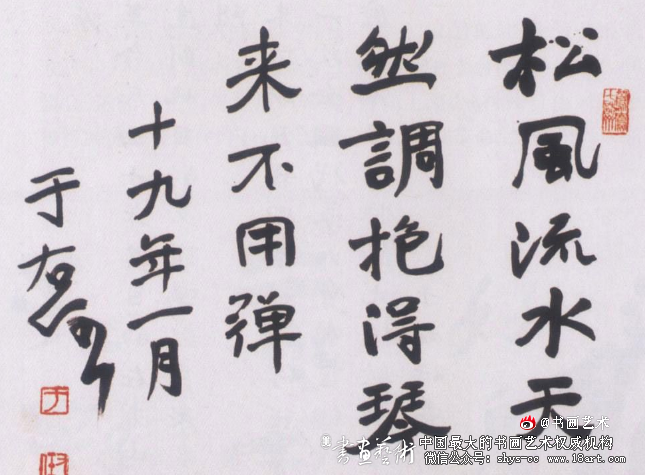 松風流水天
然調抱得琴
来不用弹
十九年一月
于右任
@书画艺术
書画藝術
中国最大的书画艺术权威机构
微信公众号：shys-cc www.18art.com